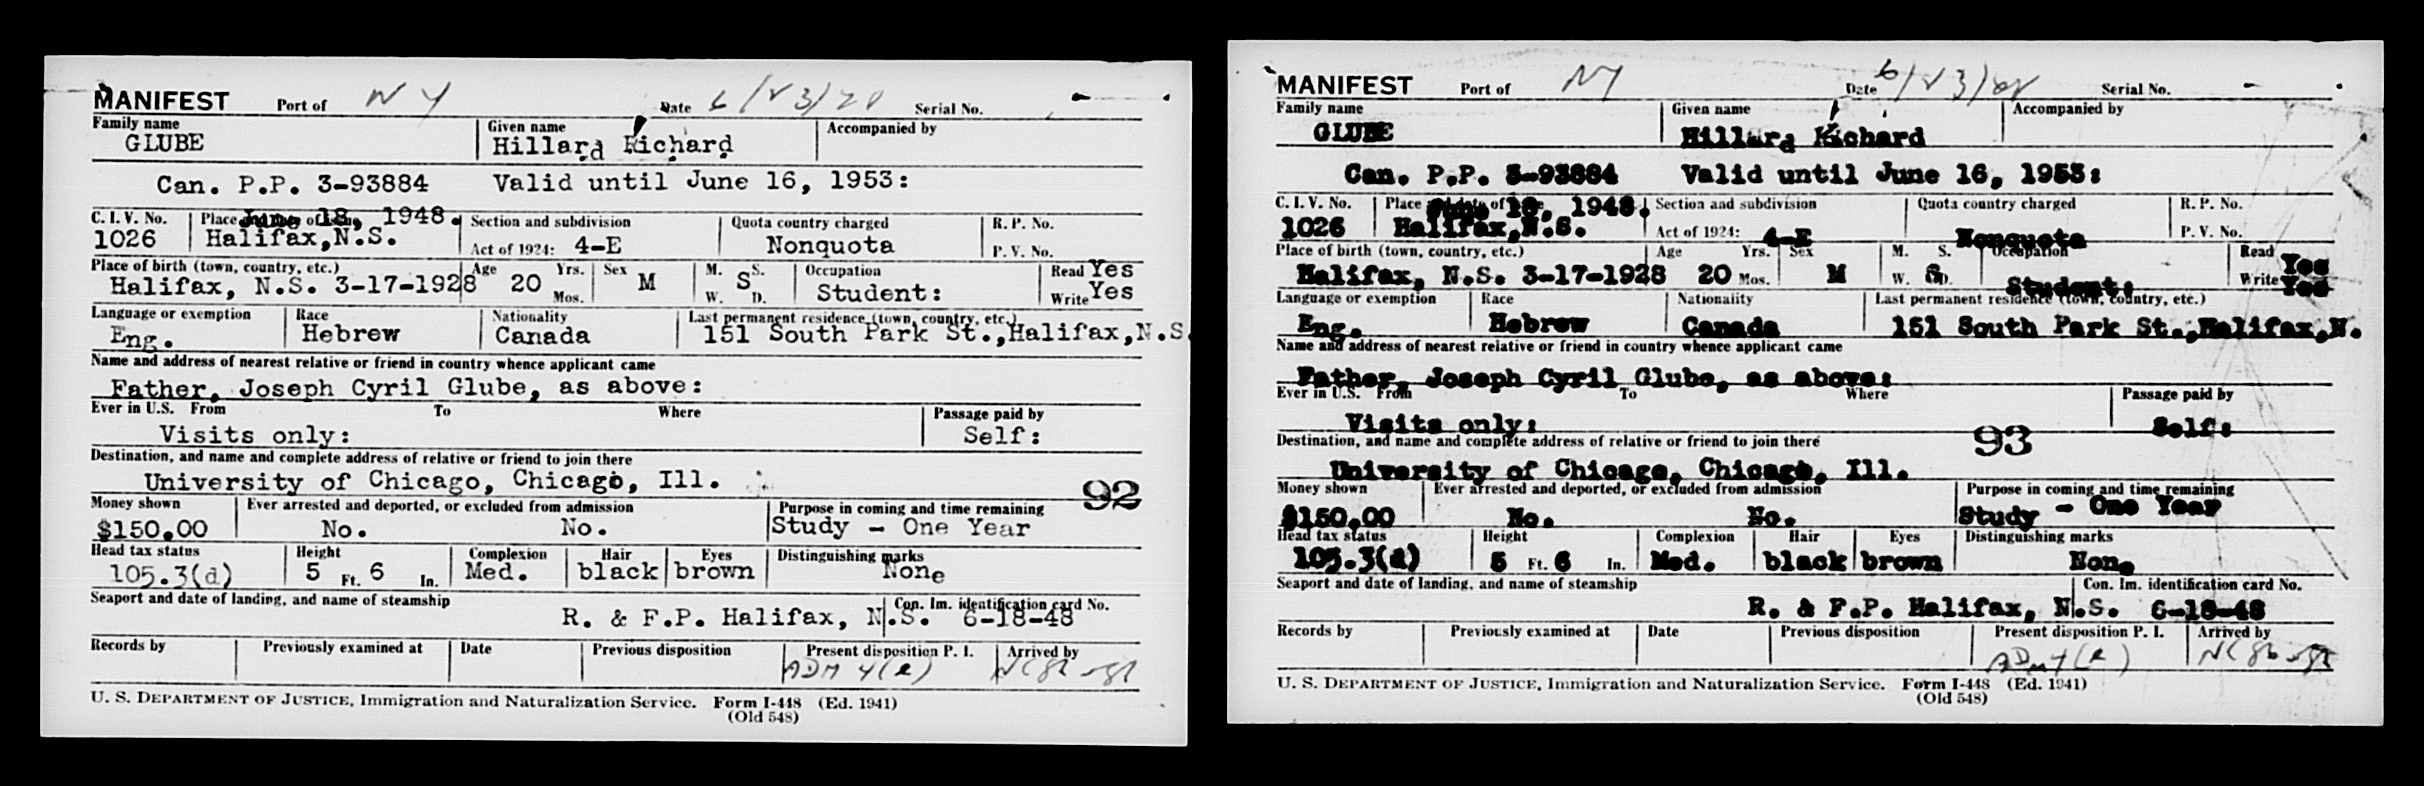 MANIFEST Port of N Y Date 6/23/ Serial No.
Family name Given name Accompanied by
GLUBE Hillard Richard
Can. P.P. 3-93884 Valid until June 16, 1953:
C. I. V. No. Place and date of issue June 18, 1948. Section and subdivision Quota country charged R. P. No.
1026 Halifax,N.S. Act of 1924: 4-E Nonquota P. V. No.
Place of birth (town, country, etc.) Age Yrs. Sex M. S. Occupation Read Yes
Halifax, N.S. 3-17-1928 20 Mos. M W. S D. Student: Write Yes
Language or exemption Race Nationality Last permanent residence (town, country, etc.)
Eng. Hebrew Canada 151 South Park St.,Halifax,N.S.
Name and address of nearest relative or friend in country whence applicant came
Father, Joseph Cyril Glube, as above:
Ever in U.S. From To Where Passage paid by
Visits only: Self:
Destination, and name and complete address of relative or friend to join there
University of Chicago, Chicago, Ill. 92
Money shown Ever arrested and deported, or excluded from admission Purpose in coming and time remaining
$150.00 No. No. Study - One Year
Head tax status Height Complexion Hair Eyes Distinguishing marks
105.3(d) 5 Ft. 6 In. Med. black brown None
Seaport and date of landing, and name of steamship Con. Im. identification card No.
R. & F.P. Halifax, N.S. 6-18-48
Records by Previously examined at Date Previous disposition Present disposition P. I. Arrived by
ADM 4(e)
U. S. DEPARTMENT OF JUSTICE, Immigration and Naturalization Service. Form I-448 (Ed. 1941)
(Old 548)
MANIFEST Port of NY Date 6/23/ Serial No.
Family name Given name Accompanied by
GLUBE Hillard Richard
Can. P.P. 3-93884 Valid until June 16, 1953:
C. I. V. No. Place and date of issue June 18, 1948. Section and subdivision Quota country charged R. P. No.
1026 Halifax,N.S. Act of 1924: 4-E Nonquota P. V. No.
Place of birth (town, country, etc.) Age Yrs. Sex M. S. Occupation Read Yes
Halifax, N.S. 3-17-1928 20 Mos. M W. S D. Student: Write Yes
Language or exemption Race Nationality Last permanent residence (town, country, etc.)
Eng. Hebrew Canada 151 South Park St.,Halifax,N.
Name and address of nearest relative or friend in country whence applicant came
Father, Joseph Cyril Glube, as above:
Ever in U.S. From To Where Passage paid by
Visits only: Self:
Destination, and name and complete address of relative or friend to join there 93
University of Chicago, Chicago, Ill.
Money shown Ever arrested and deported, or excluded from admission Purpose in coming and time remaining
$150.00 No. No. Study - One Year
Head tax status Height Complexion Hair Eyes Distinguishing marks
105.3(d) 5 Ft. 6 In. Med. black brown None
Seaport and date of landing, and name of steamship Con. Im. identification card No.
R. & F.P. Halifax, N.S. 6-18-48
Records by Previously examined at Date Previous disposition Present disposition P. I. Arrived by
ADM 4(e)
U. S. DEPARTMENT OF JUSTICE, Immigration and Naturalization Service. Form I-448 (Ed. 1941)
(Old 548)